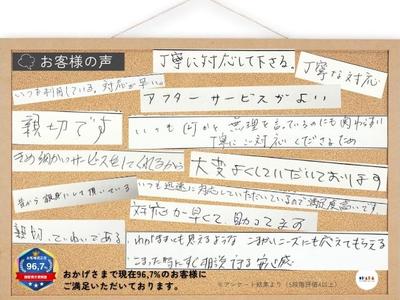 お客様の声
丁寧に対応して下さる。
丁寧な対応
いつも利用している。対応が早い。
アフターサービスがよい
親切です
いつも何かと無理を言っているのにも関わらず
丁寧にご対応くださるため
きめ細かいサービスをしてくれるから
大変よくしていただいております
昔から親身にして頂いている
いつも迅速に対応していただいているので満足度高いです。
対応が早くて、助かってます
親切、ていねいである
わがままにも思えるような
にも応えてもらえる
こまった時にすぐ相談できる安心感
96.7%
おかげさまで現在96,7%のお客様に
ご満足いただいております。
※アンケート結果より(5段階評価4以上)